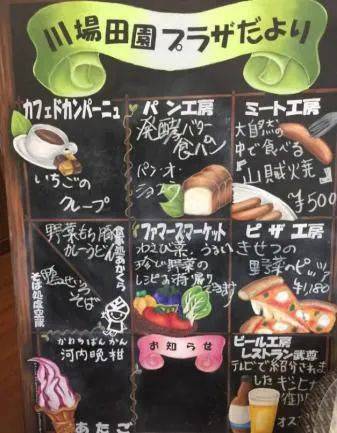 川場田園プラザだより
カフェドカンパーニュ
いちごの
クレープ
パン工房
発酵バター
食パン
パン・オ・
ショコラ
ミート工房
大自然の
中で食べる
『山賊焼』
¥500
野菜もち豚
カレーうどん
そば
ファーマーズマーケット
わさび菜、うるい
珍しい野菜の
レシピお持帰り
できます
ピザ工房
きせつの
野菜のピッツァ
¥1,180
かわちばんかん
河内晩柑
あたご
お知らせ
ビール工房
レストラン武尊
テレビで紹介されました